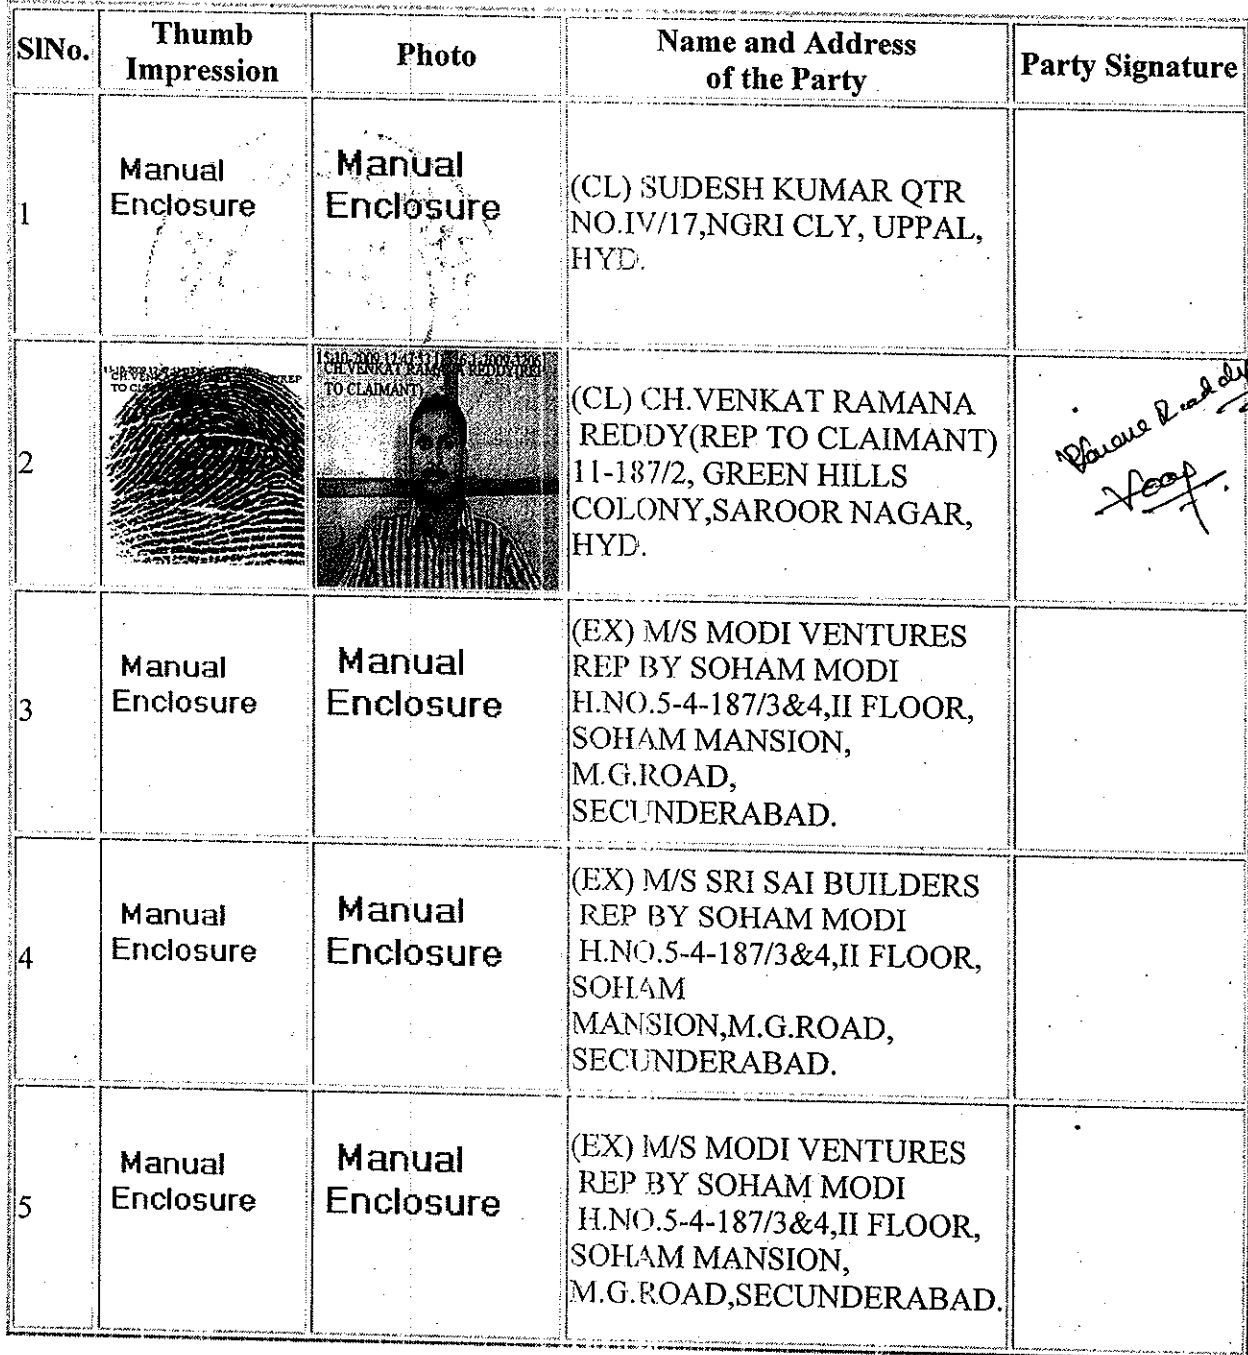 SlNo.
Thumb
Impression
Photo
Name and Address
of the Party
Party Signature
1
Manual
Enclosure
Manual
Enclosure
(CL) SUDESH KUMAR QTR
NO.IV/17,NGRI CLY, UPPAL,
HYD.
2
TO CLAIMANT)
(CL) CH.VENKAT RAMANA
REDDY(REP TO CLAIMANT)
11-187/2, GREEN HILLS
COLONY,SAROOR NAGAR,
HYD.
3
Manual
Enclosure
Manual
Enclosure
(EX) M/S MODI VENTURES
REP BY SOHAM MODI
H.NO.5-4-187/3&4,II FLOOR,
SOHAM MANSION,
M.G.ROAD,
SECUNDERABAD.
4
Manual
Enclosure
Manual
Enclosure
(EX) M/S SRI SAI BUILDERS
REP BY SOHAM MODI
H.NO.5-4-187/3&4,II FLOOR,
SOHAM
MANSION,M.G.ROAD,
SECUNDERABAD.
5
Manual
Enclosure
Manual
Enclosure
(EX) M/S MODI VENTURES
REP BY SOHAM MODI
H.NO.5-4-187/3&4,II FLOOR,
SOHAM MANSION,
M.G.ROAD,SECUNDERABAD.